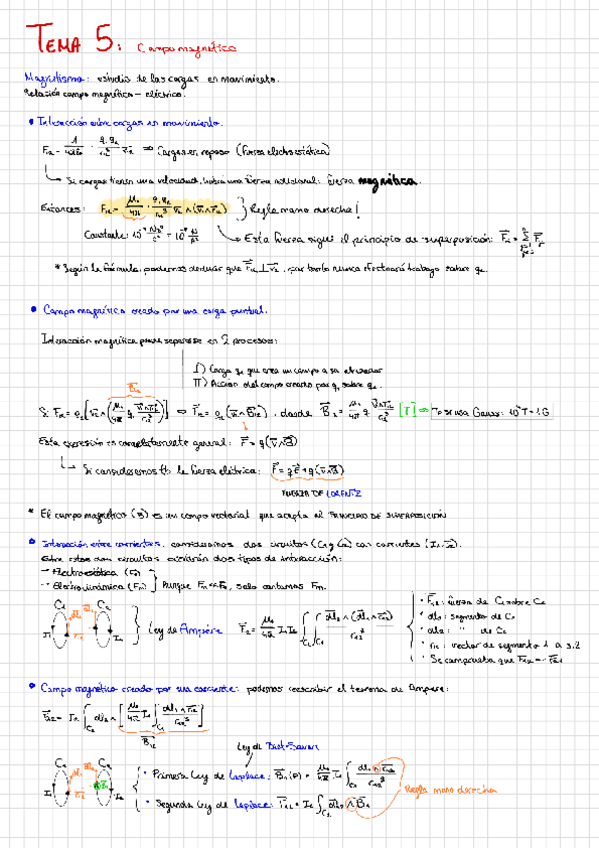 TEMA 5: Campo magnético
Magnetismo: estudio de las cargas en movimiento.
Relación campo magnético - eléctrico.
• Interacción entre cargas en movimiento.
F₁₂ = 1/4πε₀ · q₁q₂/r₁₂² r₁₂ ⇒ Cargas en reposo (fuerza electrostática)
Si cargas tienen una velocidad, habrá una fuerza adicional: fuerza magnética.
Entonces: F₁₂ = μ₀/4π · q₁q₂/r₁₂³ v₂ ∧ (v₁ ∧ r₁₂) } Regla mano derecha!
Constante: 10⁻⁷ Ns²/C² = 10⁻⁷ N/A²
Esta fuerza sigue el principio de superposición:
* Según la fórmula, podemos deducir que F₁₂ ⊥ v₂, por tanto nunca efectuará trabajo sobre q₂.
• Campo magnético creado por una carga puntual.
Interacción magnética puede separarse en 2 procesos:
I) Carga q₁ que crea un campo a su alrededor
II) Acción del campo creado por q₁ sobre q₂.
B₁₂
[T] ⇒ To se usa Gauss: 10⁻⁴T = 1G
Esta expresión es completamente general: F = q(v∧B)
Si consideramos tb la fuerza eléctrica: F = qE + q(v∧B)
FUERZA DE LORENTZ
* El campo magnético (B) es un campo vectorial que acepta el PRINCIPIO DE SUPERPOSICIÓN
• Interacción entre corrientes: consideramos dos circuitos (C₁ y C₂) con corrientes (I₁, I₂).
Entre estos dos circuitos existirán dos tipos de interacción:
→ Electrostática (Fe)
→ Electrodinámica (Fm) } Aunque Fm<<Fe, solo contamos Fm.
C₁ C₂
I₁ I₂
Ley de Ampère
• F₁₂: fuerza de C₁ sobre C₂
• dl₁: segmento de C₁
• dl₂: " de C₂
• r₁₂: vector de segmento 1 a s.2
• Se comprueba que F₁₂ = -F₂₁
• Campo magnético creado por una corriente: podemos reescribir el teorema de Ampère:
B₁₂
Ley de Biot-Savart
C₁ C₂
• Primera Ley de Laplace:
Regla mano derecha
• Segunda Ley de Laplace: